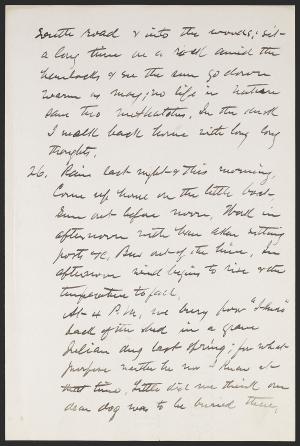 South road & into the woods; sit
a long time on a rock amid the
hemlocks & see the sun go down
warm as may; no life in nature
save two nuthatches. In the dusk
I walk back home with long long
thoughts.
26. Rain last night & this morning,
Come up home on the little boat
Sun out before noon. Work in
afternoon with Hiram setting
posts &c. Bees out of the hive. In
afternoon wind begins to rise & the
temperature to fall.
At 4 P.M. we bury poor "
back of the shed in a grave
Julian dug last spring; for what
purpose neither he nor I knew at
that time. Little did we think our
dear dog was to be buried there,